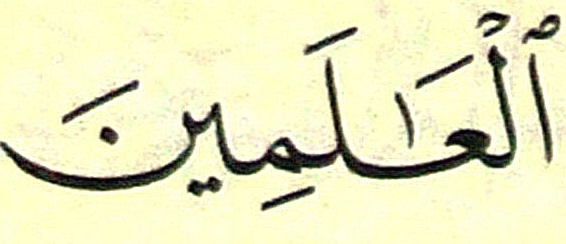 ٱلْعَٰلَمِينَ